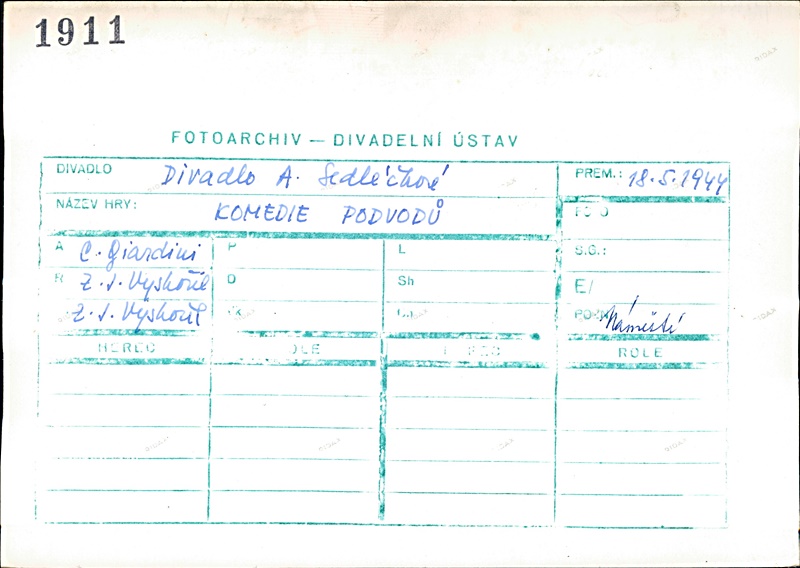 1911
FOTOARCHIV — DIVADELNÍ ÚSTAV
DIVADLO Divadlo A. Sedláčkové PREM.: 18.5.1944
NÁZEV HRY: KOMEDIE PODVODŮ FOTO
A C. Giardini P L S.G.:
R Z. J. Vyskočil D Sh E/
Z. J. Vyskočil POZN. Náměstí
HEREC ROLE HEREC ROLE